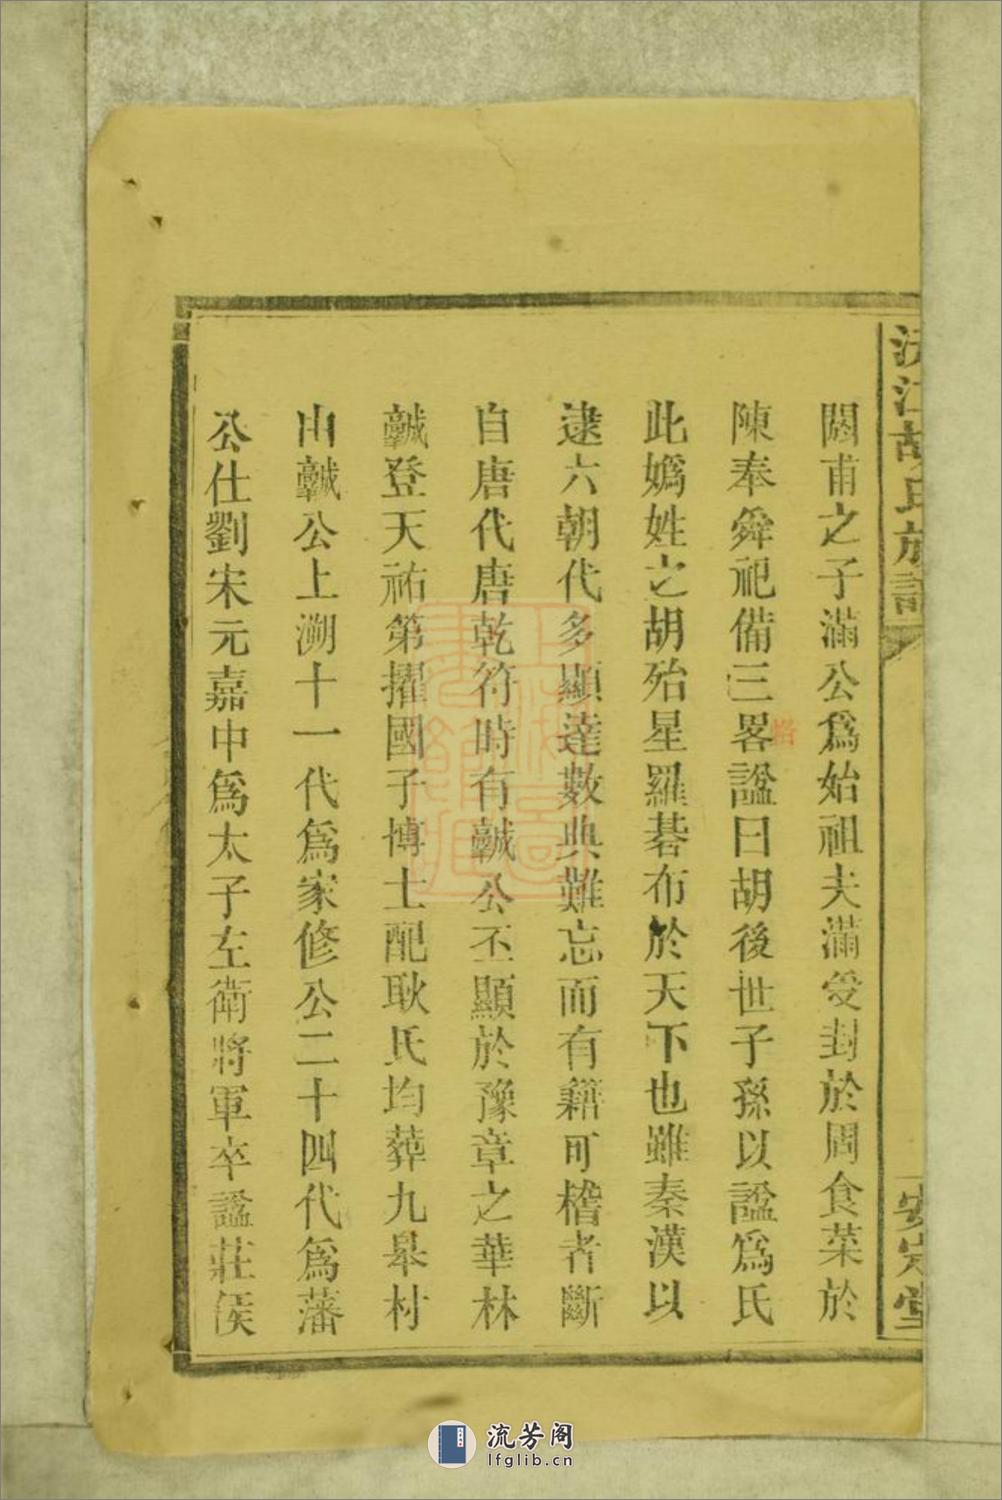 江胡氏族譜
安定堂
閼甫之子滿公爲始祖夫滿受封於周食菜於
陳奉舜祀備三畧諡曰胡後世子孫以諡爲氏
此嬀姓之胡殆星羅碁布於天下也雖秦漢以
逮六朝代多顯達數典難忘而有籍可稽者斷
自唐代唐乾符時有虢公丕顯於豫章之華林
登天祐第擢國子博士配耿氏均葬九皋村
由公上溯十一代爲家修公二十四代爲藩
公仕劉宋元嘉中爲太子左衛將軍卒諡莊侯
流芳阁
lfglib.cn